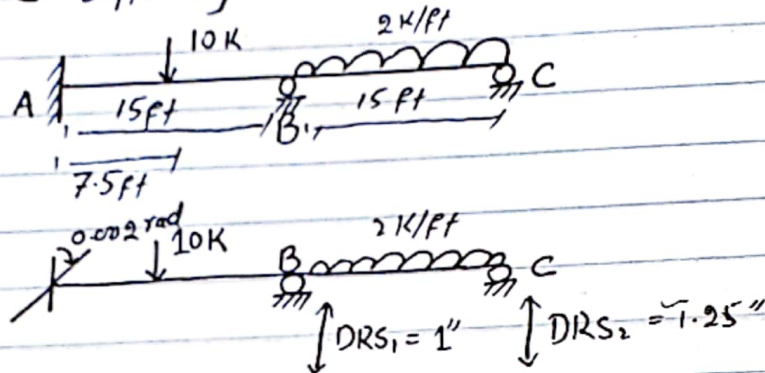 10K
2K/ft
A
15ft
B
15ft
C
7.5ft
0.002 rad
10K
B
2K/ft
C
DRS₁ = 1"
DRS₂ = 1.25"